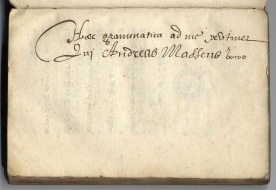 Hæc grammatica ad me pertinet
Qui Andreas Massens vocor